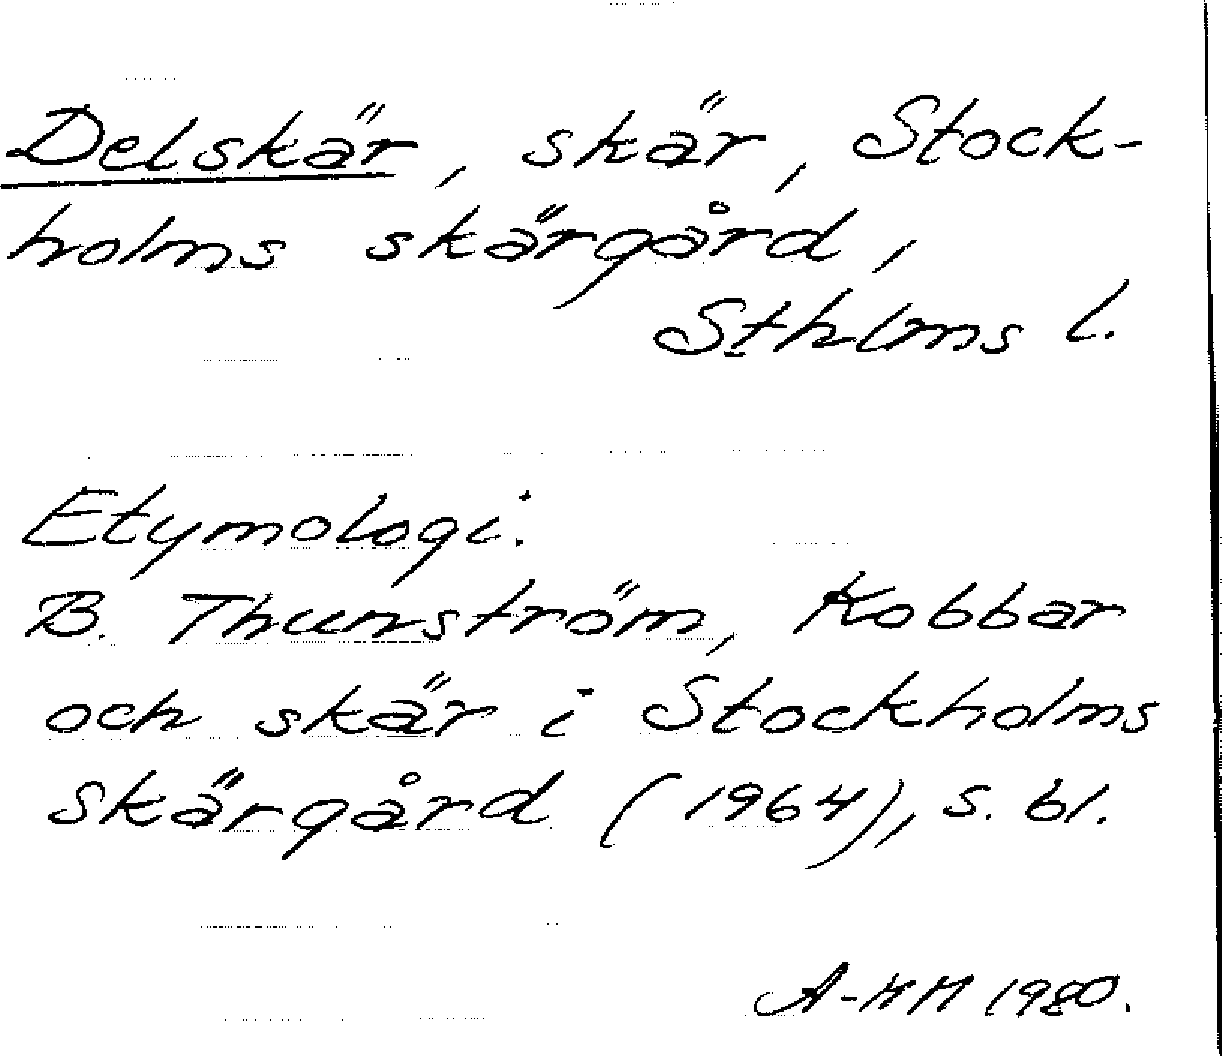 Delskär, skär, Stock-
holms skärgård,
Sthlms l.
Etymologi.
B. Thunström, Kobbar
och skär i Stockholms
skärgård (1964), s. 61.
A-HM 1980.